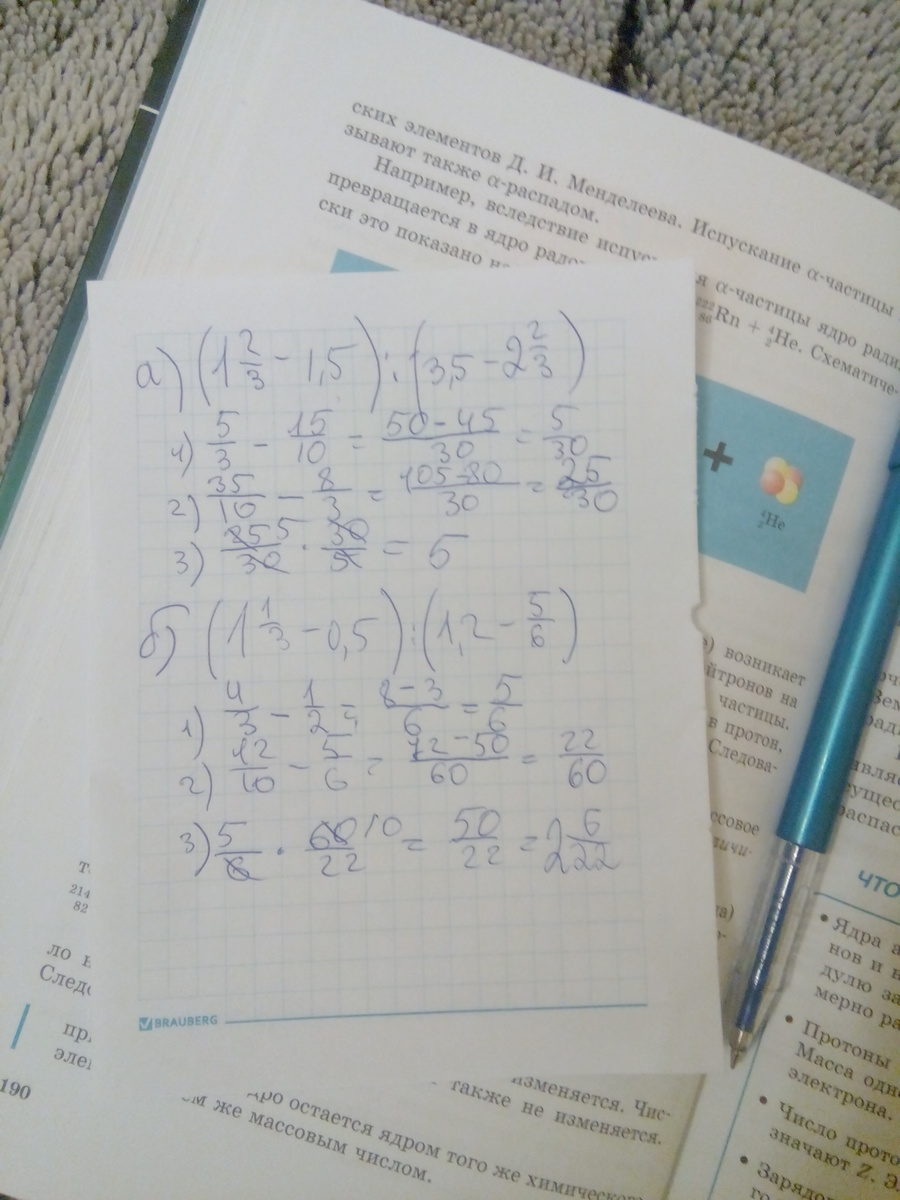 ских элементов Д. И. Менделеева. Испускание α-частицы
зывают также α-распадом.
Например, вследствие испус
я α-частицы ядро ради
превращается в ядро радо
²²²₈₆Rn + ⁴₂He. Схематиче-
ски это показано н
+
⁴₂He
а) (1 2/3 - 1,5) : (3,5 - 2 2/3)
1) 5/3 - 15/10 = (50-45)/30 = 5/30
2) 35/10 - 8/3 = (105-80)/30 = 25/30
3) 25 5/30 · 30/5 = 5
б) (1 1/3 - 0,5) : (1,2 - 5/6)
1) 4/3 - 1/2 = (8-3)/6 = 5/6
2) 12/10 - 5/6 = (72-50)/60 = 22/60
3) 5/6 · 60 10/22 = 50/22 = 2 6/22
BRAUBERG
) возникает
йтронов на
частицы.
в протон,
Следова-
ссовое
214
82
ло
Следо
пр.
элем
190
изменяется. Чис-
также не изменяется.
дро остается ядром того же химического
м же массовым числом.
ЧТО
• Ядра а
нов и н
дулю за
мерно ра
• Протоны
Масса одн
электрона.
• Число прото
значают Z. Э
• Зарядо